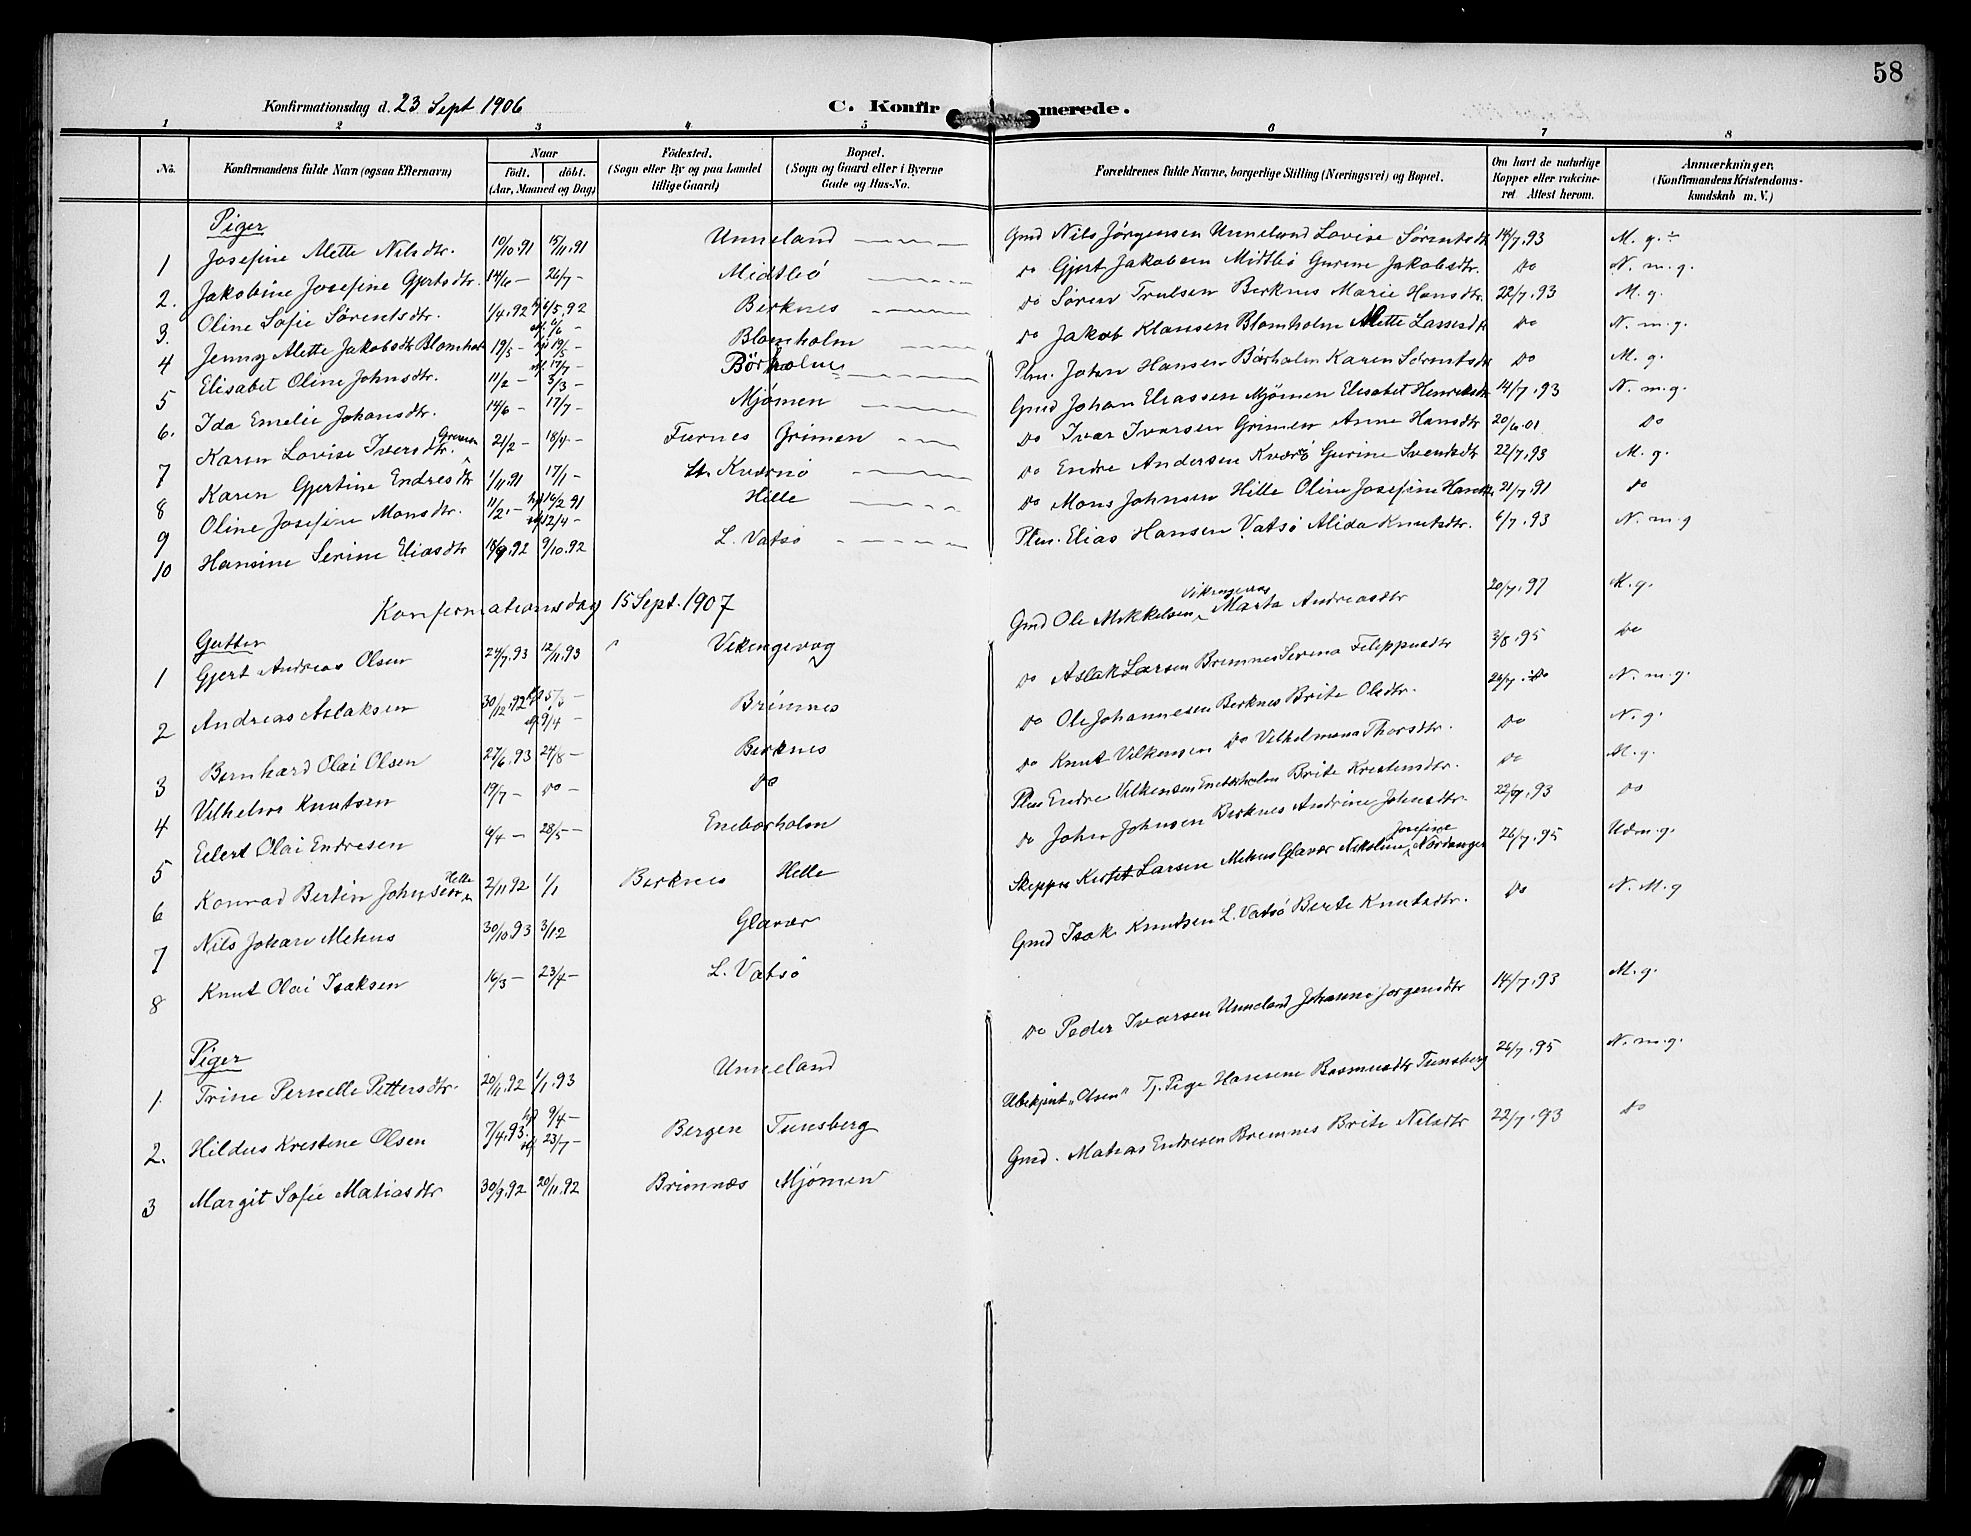 58
Konfirmationsdag d. 23 Sept 1906 C. Konfirmerede.
1 2 3 4 5 6 7 8
No. Konfirmandens fulde Navn (ogsaa Efternavn) Naar födt. döbt. (Aar, Maaned og Dag) Födested. (Sogn eller By og paa Landet tillige Gaard) Bopæl. (Sogn og Gaard eller i Byerne Gade og Hus-No. Forældrenes fulde Navne, borgerlige Stilling (Næringsvei) og Bopæl. Om havt de naturlige Kopper eller vakcineret Attest herom. Anmærkninger. (Konfirmandens Kristendomskundskab m. V.)
Piger
1 Josefine Alette Nilsdtr. 10/10.91 15/11.91 Unneland Gmd Nils Jørgensen Unneland Lovise Sørentsdtr 14/7.93 M. g. ÷
2. Jakobine Josefine Gjertsdtr. 14/6 — 26/7 - Midtbö Do Gjert Jakobsen Midtbö Gurine Jakobsdtr. Do N. m. g.
3. Oline Sofie Sørentsdtr. 1/4.92 6/5.92 6/6 - Berknes Do Sören Trulsen Berknes Marie Hansdtr. 22/7.93 M. g.
4 Jenny Alette Jakobsdtr Blomholm 19/5 - 19/5 - 17/7 - Blomholm Do Jakob Klausen Blomholm Alette Lassesdtr Do N. m. g.
5 Elisabet Oline Johnsdtr. 11/2 - 5/3 - Börholm Plm. Johan Hansen Börholm Karen Sørentsdtr Do M. g.
6. Ida Emelie Johansdtr. 14/6 - 17/7 - Mjömen Gmd Johan Eliassen Mjömen Elisabet Henriksdtr 14/7.93 N. m. g.
7 Karen Lovise Iversdtr. Grimen 21/2 - 18/4 - Furnes Grimen Do Ivar Ivarsen Grimen Anne Hansdtr 20/6.01 Do
8 Karen Gjertine Endresdtr 1/11.91 17/1 - St. Kværnö Do Endre Andersen Kværö Gurine Svendsdtr 22/7.93 M. g.
9 Oline Josefine Monsdtr. 11/2. - 16/2 91 12/4 - Hille Do Mons Johnsen Hille Oline Josefine Hansdtr 21/7.91 Do
10 Hansine Serine Eliasdtr 18/9.92 9/10.92 L. Vatsö Plm. Elias Hansen Vatsö Alida Knutsdtr. 6/7.93 N. m. g
Konfirmationsdag 15 Sept. 1907
Gutter
1 Gjert Andreas Olsen 24/7.93 12/11.93 Vikingevåg Gmd Ole Mikkelsen Vikingevåg Marta Andreasdtr 20/7.97 M. g.
2 Andreas Aslaksen 30/12.92 5/3 - 9/4 - Brimnes Do Aslak Larsen Bremnes Serena Filippusdtr 3/8.95 Do
3 Bernhard Olai Olsen 27/6.93 24/8 - Berknes Do Ole Johannesen Berknes Brite Olsdtr. 26/7. Do N. m. g.
4 Vilhelm Knutsen 19/7 - Do - Do Do Knut Vilkensen Do Vilhelmina Thorsdtr. Do N. g.
5 Eilert Olai Endresen 9/4 - 28/5 - Enebærholm Plm Endre Vilkensen Enebærholm Brite Kristensdtr. Do M. g.
6 Konrad Bertin Johnsen Hille 2/11.92 1/1 Berknes Hille Do John Johnsen Berknes Andrine Johnsdtr. 22/7.93 Do
7 Nils Johan Mehus 30/10.93 3/12 Glavær Skipper Larsen Mehus Glavær Nikoline Josefine Nordanger 26/7.95 Udm. g.
8 Knut Olai Isaksen 16/3 - 23/4 - L. Vatsö Gmd Isak Knutsen L. Vatsö Berte Knutsdtr. Do N. M. g
Piger
1. Trine Pernelle Pettersdtr. 20/11.92 1/1.93 Unneland Do Peder Ivarsen Unneland Johanne Jorgensdtr 14/7.93 M. g.
2. Hildus Kristine Olsen 7/4.93. 9/4 - 23/7 - Bergen Tunsberg Ubekjent „Olsen" Tj. Pige Hansine Rasmusdtr Tunsberg 26/7.95 N. m. g.
3 Margit Sofie Matiasdtr 30/9.92 20/11.92 Brimnæs Mjömen Gmd. Matias Endresen Bremnes Brite Nilsdtr 22/7.93 Do